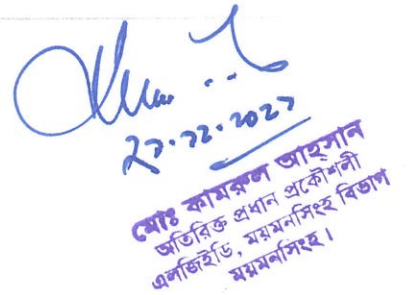 মোঃ কামরুল আহসান
অতিরিক্ত প্রধান প্রকৌশলী
এলজিইডি, ময়মনসিংহ বিভাগ
ময়মনসিংহ।